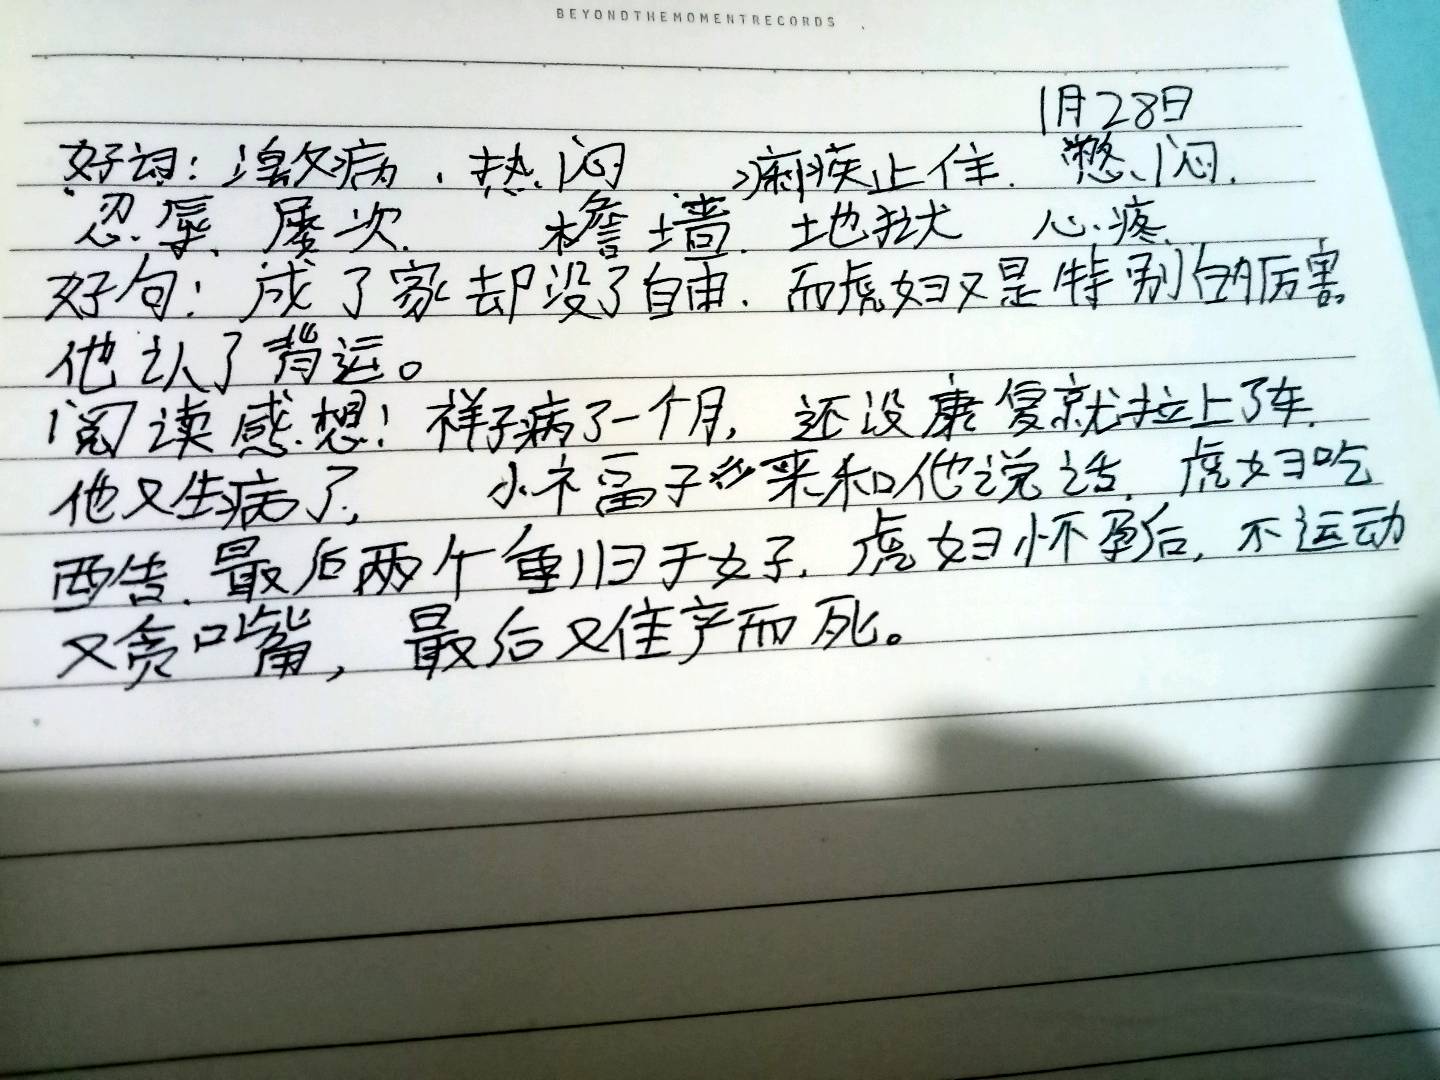 BEYONDTHEMOMENTRECORDS
1月28日
好词: 病. 热闷 痢疾止住. 憋闷.
忍辱、屡次. 檐墙. 地狱 心疼.
好句: 成了家却没了自由. 而虎妞又是特别的厉害
他认了背运。
阅读感想: 祥子病了一个月, 还没康复就拉上了车.
他又生病了, 小福子来和他说话. 虎妞吃
西告. 最后两个重归于好. 虎妞怀孕后, 不运动
又贪嘴, 最后又住产而死。